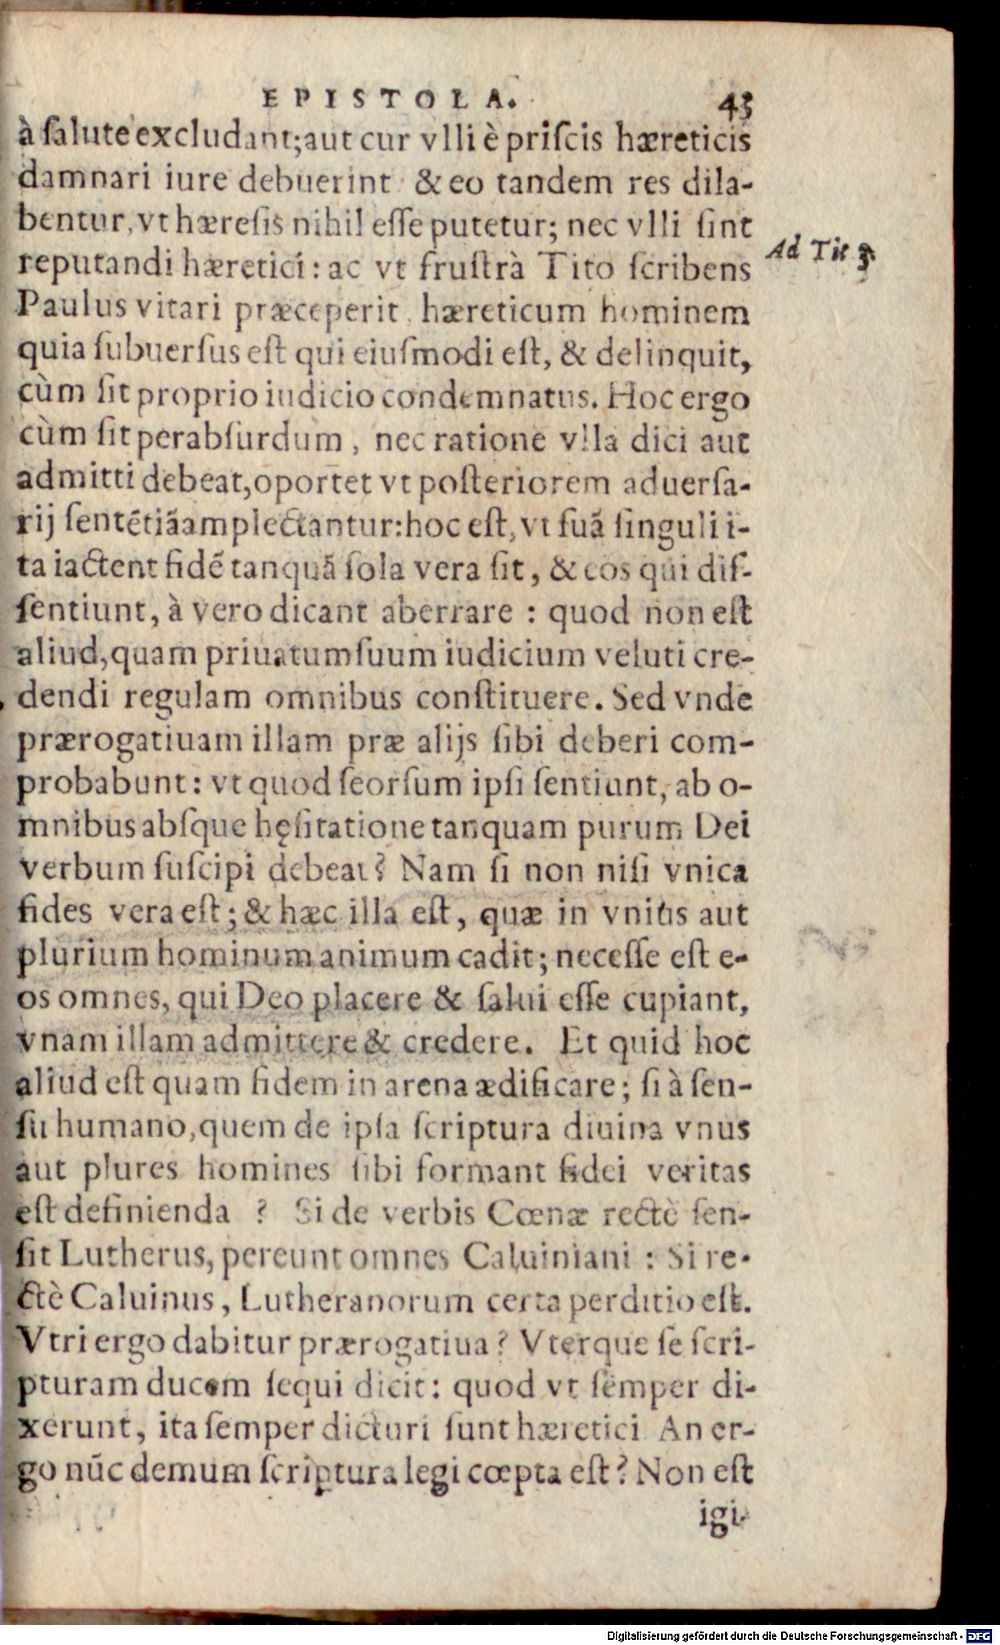 EPISTOLA. 43
à ſalute excludant; aut cur vlli è priſcis hæreticis
damnari iure debuerint & eo tandem res dila-
bentur, vt hæreſis nihil eſſe putetur; nec vlli ſint
reputandi hæretici: ac vt fruſtrà Tito ſcribens
Ad Tit 3.
Paulus vitari præceperit hæreticum hominem
quia ſubuerſus eſt qui eiuſmodi eſt, & delinquit,
cùm ſit proprio iudicio condemnatus. Hoc ergo
cùm ſit perabſurdum, nec ratione vlla dici aut
admitti debeat, oportet vt poſteriorem aduerſa-
rij ſentẽtiã amplectantur: hoc eſt, vt ſuã ſinguli i-
ta iactent fidẽ tanquã ſola vera ſit, & eos qui diſ-
ſentiunt, à vero dicant aberrare: quod non eſt
aliud, quam priuatum ſuum iudicium veluti cre-
dendi regulam omnibus conſtituere. Sed vnde
prærogatiuam illam præ alijs ſibi deberi com-
probabunt: vt quod ſeorſum ipſi ſentiunt, ab o-
mnibus abſque hęſitatione tanquam purum Dei
verbum ſuſcipi debeat? Nam ſi non niſi vnica
fides vera eſt; & hæc illa eſt, quæ in vnius aut
plurium hominum animum cadit; neceſſe eſt e-
os omnes, qui Deo placere & ſalui eſſe cupiant,
vnam illam admittere & credere. Et quid hoc
aliud eſt quam fidem in arena ædificare; ſi à ſen-
ſu humano, quem de ipſa ſcriptura diuina vnus
aut plures homines ſibi formant fidei veritas
eſt definienda ? Si de verbis Cœnæ rectè ſen-
ſit Lutherus, pereunt omnes Caluiniani: Si re-
ctè Caluinus, Lutheranorum certa perditio eſt.
Vtri ergo dabitur prærogatiua? Vterque ſe ſcri-
pturam ducem ſequi dicit: quod vt ſemper di-
xerunt, ita ſemper dicturi ſunt hæretici An er-
go nũc demum ſcriptura legi cœpta eſt? Non eſt
igi-
Digitalisierung gefördert durch die Deutsche Forschungsgemeinschaft - DFG